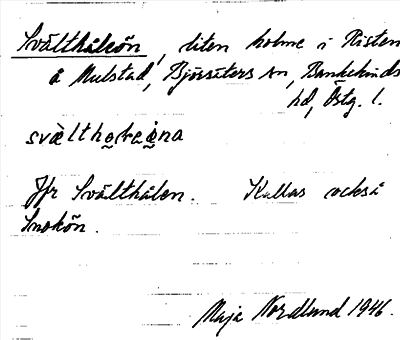 Svälthålsön, liten holme i Risten
å Mulstad, Björsäters sn, Bankekinds
hd, Östg. l.
Jfr Svälthålen. Kallas också
Snokön.
Maja Nordlund 1946.